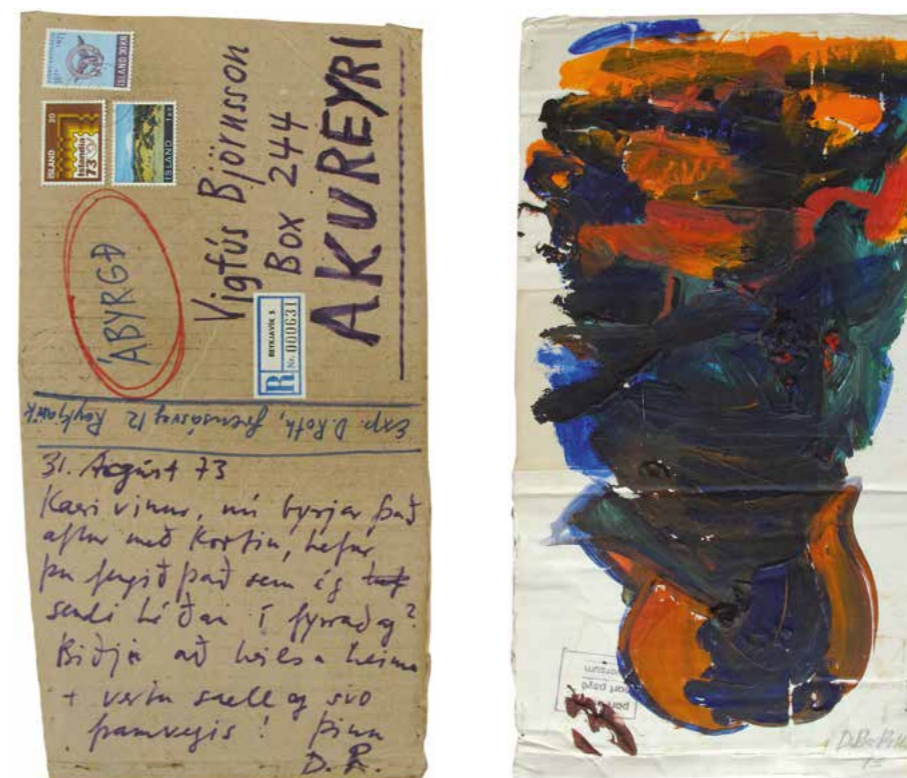 ÍSLAND 30KR
ÍSLAND 20
Íslandia 73
ÍSLAND
ÁBYRGÐ
Vigfús Björnsson
Box 244
AKUREYRI
REYKJAVÍK 5
R Nr. 000631
Exp. D. Roth, Grensásveg 12 Reykjavik
31. Ágúst 73
Kæri vinur, nú byrjar það
aftur með Kortin, hefur
þu fengið það sem ég
sendi héðan í fyrradag?
Biðja að heilsa heima
+ vertu sæll og svo
framvegis! Þinn
D. R.
port payé